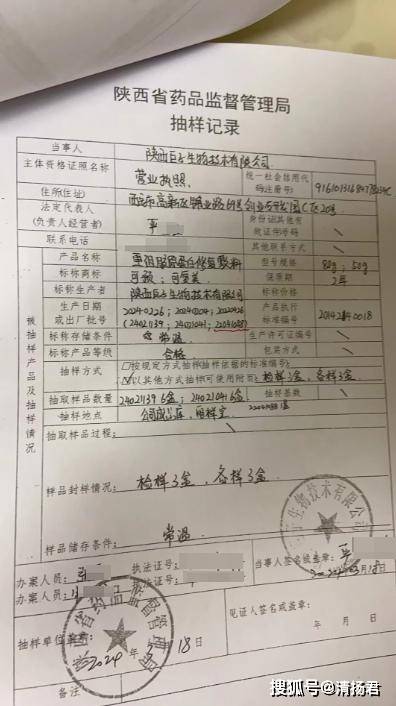 陕西省药品监督管理局
抽样记录
当事人 陕西巨子生物技术有限公司
主体资格证照名称 营业执照 统一社会信用代码(注册号)
住所(住址)
法定代表人(负责人经营者) 平 身份证(其他有效证件)号码 \
联系电话 其他联系方式 \
被抽样产品及抽样情况
产品名称 重组胶原蛋白修复敷料 型号规格 80g；50g
标称商标 可预；可复美 保质期 2年
标称生产者 陕西巨子生物技术有限公司 标称价格
生产日期或出厂批号 产品执行标准编号 20142140018
标称存储条件 常温 生产许可证编号 \
标称产品等级 合格 包装方式 \
抽样方式 □按规定方式抽样抽样依据的标准编号:
☑以其他方式抽样可使用附页: 检样3盒，备样3盒
抽取样品数量 24021139 6盒；24021041 6盒 抽样基数 \
抽样地点 公司成品库，留样室
抽取样品过程: \
样品封样情况: 检样3盒、备样3盒
样品储存条件: 常温
办案人员: 执法证号:
办案人员: 执法证号:
当事人签名或盖章: 平
抽样单位盖章: 2024年 18日
见证人签名或盖章:
年 月 日
备注 \
搜狐号@清扬君